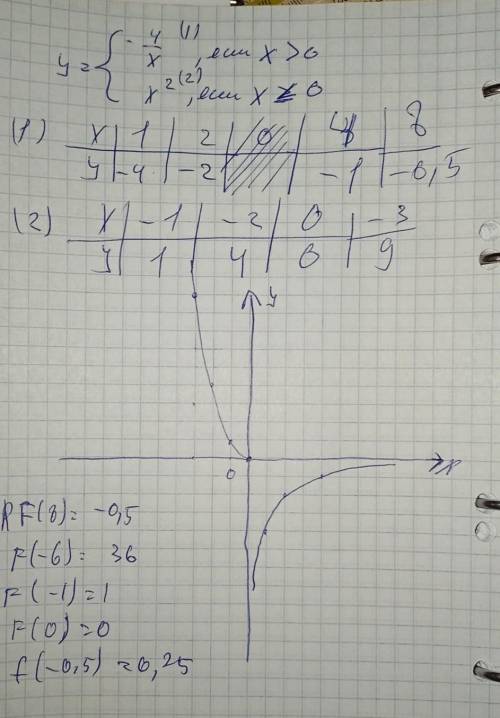 y = { - 4/x (1), если x > 0
x² (2), если x ≤ 0
(1) x | 1 | 2 | 0 | 4 | 8
y | -4 | -2 | | -1 | -0,5
(2) x | -1 | -2 | 0 | -3
y | 1 | 4 | 0 | 9
y
0 x
F(8) = -0,5
F(-6) = 36
F(-1) = 1
F(0) = 0
f(-0,5) = 0,25